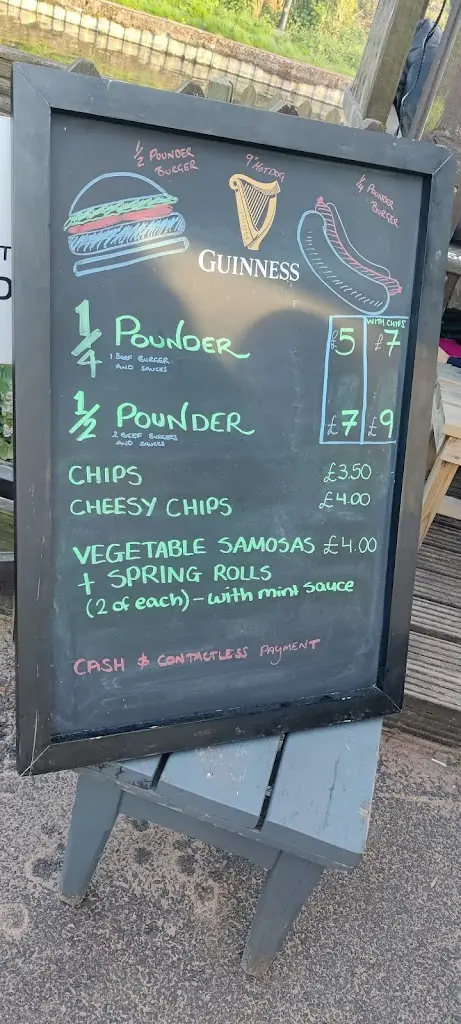 1/2 POUNDER
BURGER
9" HOTDOG
1/4 POUNDER
BURGER
GUINNESS
WITH CHIPS
1/4 POUNDER £5 £7
1 BEEF BURGER
AND SAUCES
1/2 POUNDER £7 £9
2 BEEF BURGERS
AND SAUCES
CHIPS £3.50
CHEESY CHIPS £4.00
VEGETABLE SAMOSAS £4.00
+ SPRING ROLLS
(2 of each) - with mint sauce
CASH & CONTACTLESS PAYMENT